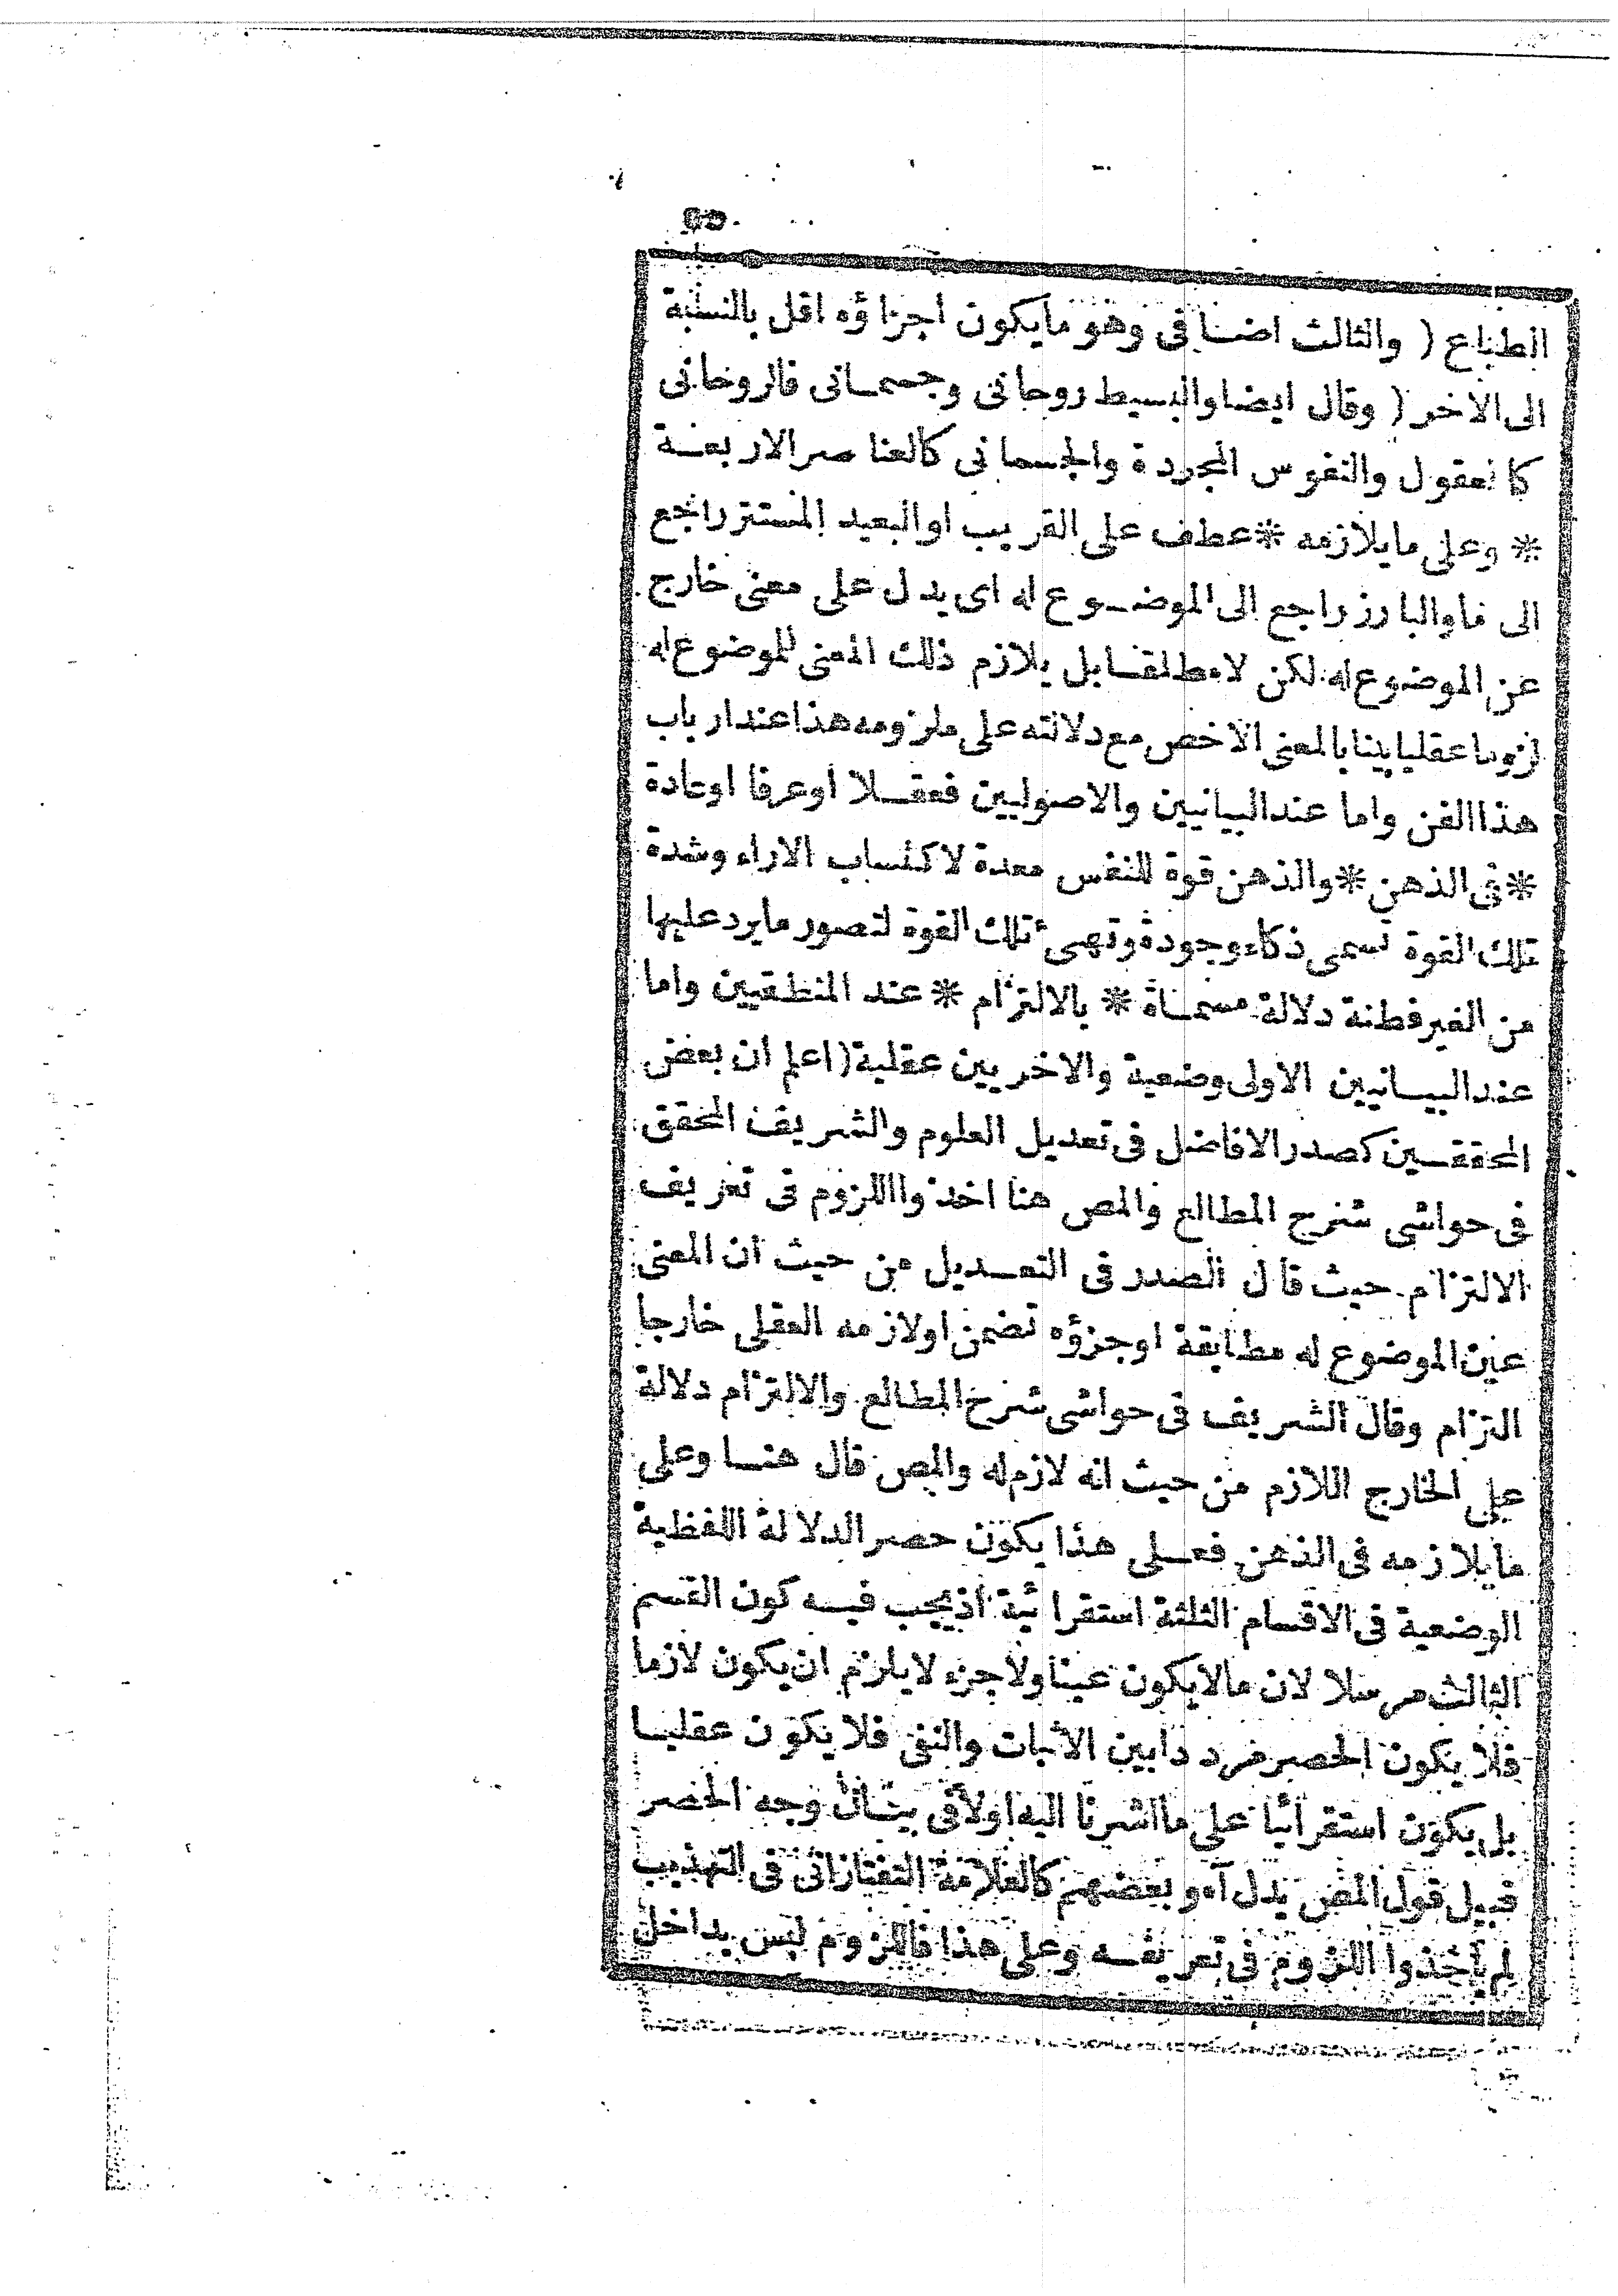 الطباع ( والثالث اضافى وهو مايكون اجزاؤه اقل بالنسبة
الى الاخر ( وقال ايضا والبسيط روحانى وجسمانى فالروحانى
كالعقول والنفوس المجردة والجسمانى كالعناصر الاربعة
* وعلى مايلازمه * عطف على القريب او البعيد المستتر راجع
الى ما والبارز راجع الى الموضوع له اى يدل على معنى خارج
عن الموضوع له لكن لامطلقا بل يلازم ذلك المعنى للموضوع له
لزوما عقليا بينا بالمعنى الاخص مع دلالته على ملزومه هذا عند ارباب
هذا الفن واما عند البيانيين والاصوليين فعقلا او عرفا او عادة
* فى الذهن * والذهن قوة للنفس معدة لاكتساب الاراء وشدة
تلك القوة تسمى ذكاء وجودة وتهيئ تلك القوة لتصور مايرد عليها
من الغير فطنة دلالة مسماة * بالالتزام * عند المنطقيين واما
عند البيانيين الاولى وضعية والاخريين عقلية ( اعلم ان بعض
المحققين كصدر الافاضل فى تعديل العلوم والشريف المحقق
فى حواشى شرح المطالع والمص هنا اخذوا اللزوم فى تعريف
الالتزام حيث قال الصدر فى التعديل من حيث ان المعنى
عين الموضوع له مطابقة او جزؤه تضمن او لازمه العقلى خارجا
التزام وقال الشريف فى حواشى شرح المطالع والالتزام دلالة
على الخارج اللازم من حيث انه لازم له والمص قال هنا وعلى
مايلازمه فى الذهن فعلى هذا يكون حصر الدلالة اللفظية
الوضعية فى الاقسام الثلثة استقرائية اذ يجب فيه كون القسم
الثالث مرسلا لان مالايكون عينا ولاجزء لايلزم ان يكون لازما
فلا يكون الحصر مرددا بين الاثبات والنفى فلا يكون عقليا
بل يكون استقرائيا على مااشرنا اليه اولا فى بيان وجه الحصر
قبيل قول المص يدل آه وبعضهم كالعلامة التفتازانى فى التهذيب
لم يأخذوا اللزوم فى تعريفه وعلى هذا فاللزوم ليس بداخل